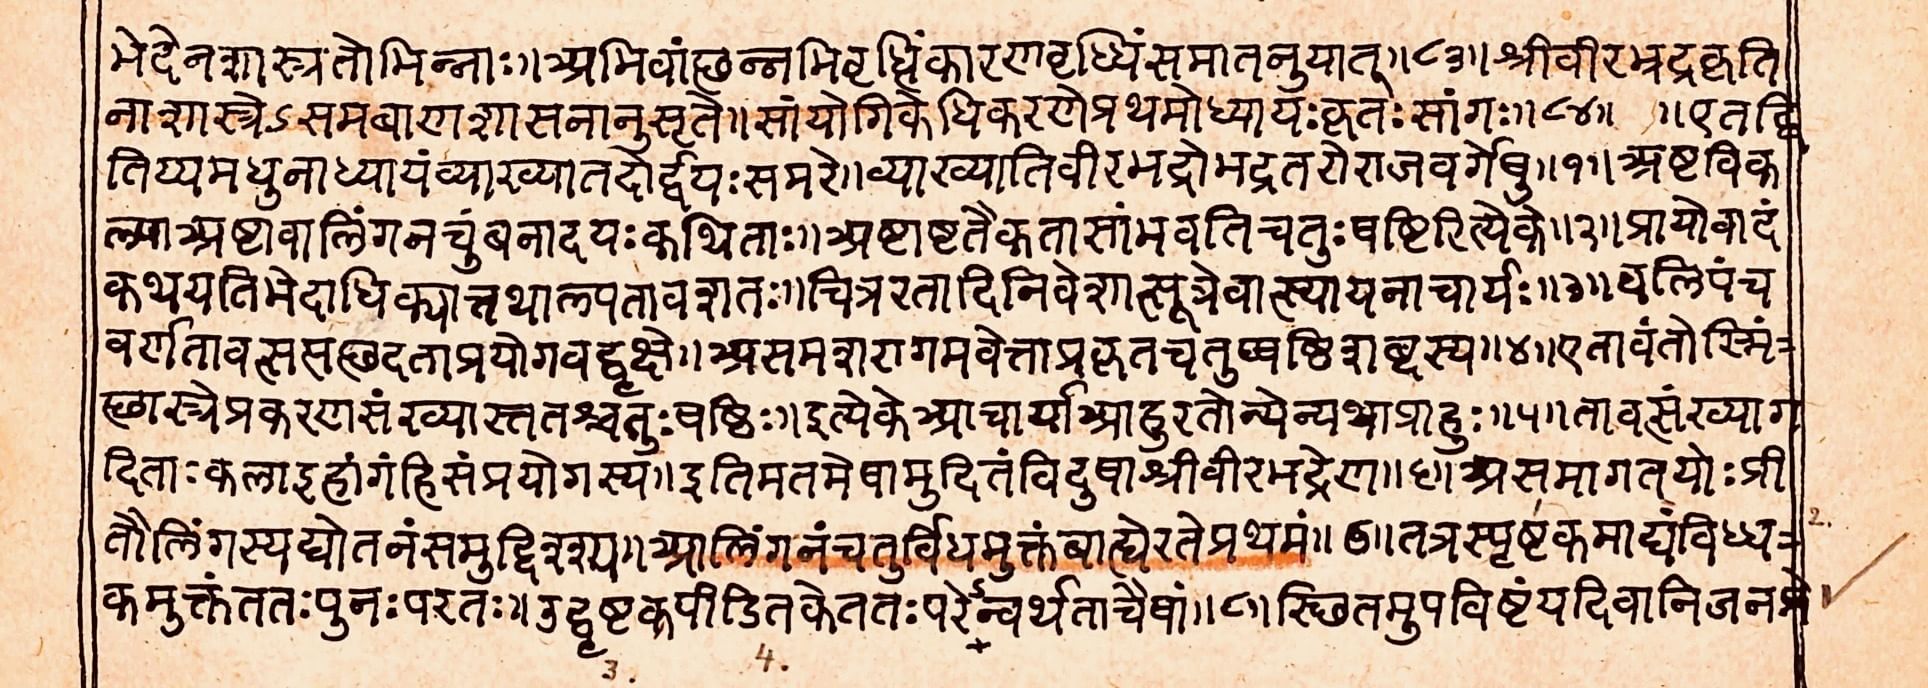 भेदेनशास्त्रतोभिन्नाः॥अभिवांछन्नभिवृद्धिंकारणवृद्धिंसमातनुयात्॥८३॥श्रीवीरभद्रकृति
नाशास्त्रेऽसमबाणशासनानुसृते॥सांयोगिकेधिकरणेप्रथमोध्यायःकृतःसांगः॥८४॥ ॥एतद्वि
तिय्यमधुनाध्यायंव्याख्यातदोर्द्वयःसमरे॥व्याख्यातिवीरभद्रोभद्रतरोराजवर्गेषु॥१॥अष्टविक
ल्पाअष्टावालिंगनचुंबनादयःकथिताः॥अष्टाष्टतैकतासांभवतिचतुःषष्टिरित्येके॥२॥प्रायोवादं
कथयतिभेदाधिक्यात्तथाल्पतावशतः॥चित्ररतादिनिवेशात्सूत्रेवात्स्यायनाचार्यः॥३॥बलिपंच
वर्णतावत्ससछदताप्रयोगवद्वृक्षे॥असमशरागमवेत्ताप्रकृतचतुष्षष्ठिशब्दस्य॥४॥एतावंतोस्मिं-
छास्त्रेप्रकरणसंख्यास्ततश्चतुःषष्ठिः॥इत्येकेआचार्याआहुरतोन्येन्यथाप्राहुः॥५॥तावत्संख्याग
दिताःकलाइहांगंहिसंप्रयोगस्य॥इतिमतमेषामुदितंविदुषाश्रीवीरभद्रेण॥६॥असमागतयोःप्री
तौलिंगस्यद्योतनंसमुद्दिश्य॥आलिंगनंचतुर्विधमुक्तंबाह्येरतेप्रथमं॥७॥तत्रस्पृष्टकमाद्यंविध्य- 2.
कमुक्तंततःपुनःपरतः॥उद्घृष्टकपीडितकेततःपरेन्वर्थताचैषां॥८॥स्छितमुपविष्टंयदिवानिजनमे
3. 4.